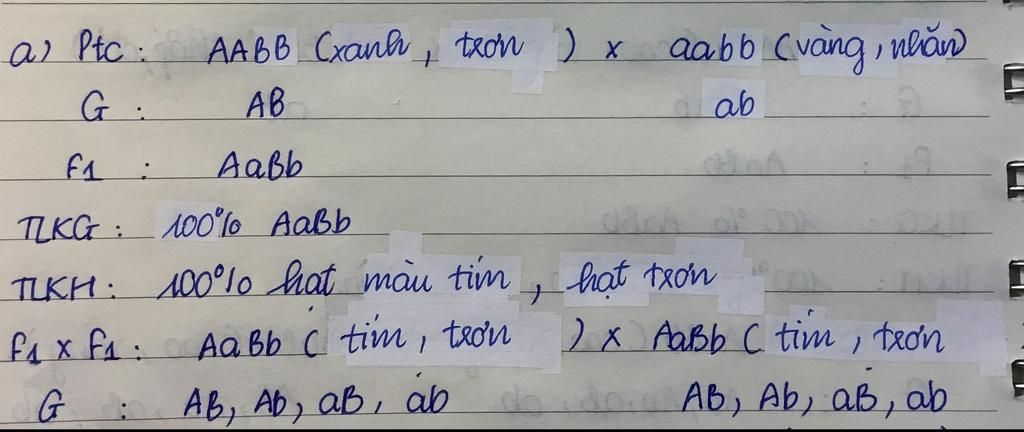 a) Ptc : AABB (xanh, trơn) x aabb (vàng, nhăn)
G : AB ab
F1 : AaBb
TLKG : 100% AaBb
TLKH : 100% hạt màu tím, hạt trơn
F1 x F1 : AaBb (tím, trơn) x AaBb (tím, trơn
G : AB, Ab, aB, ab AB, Ab, aB, ab